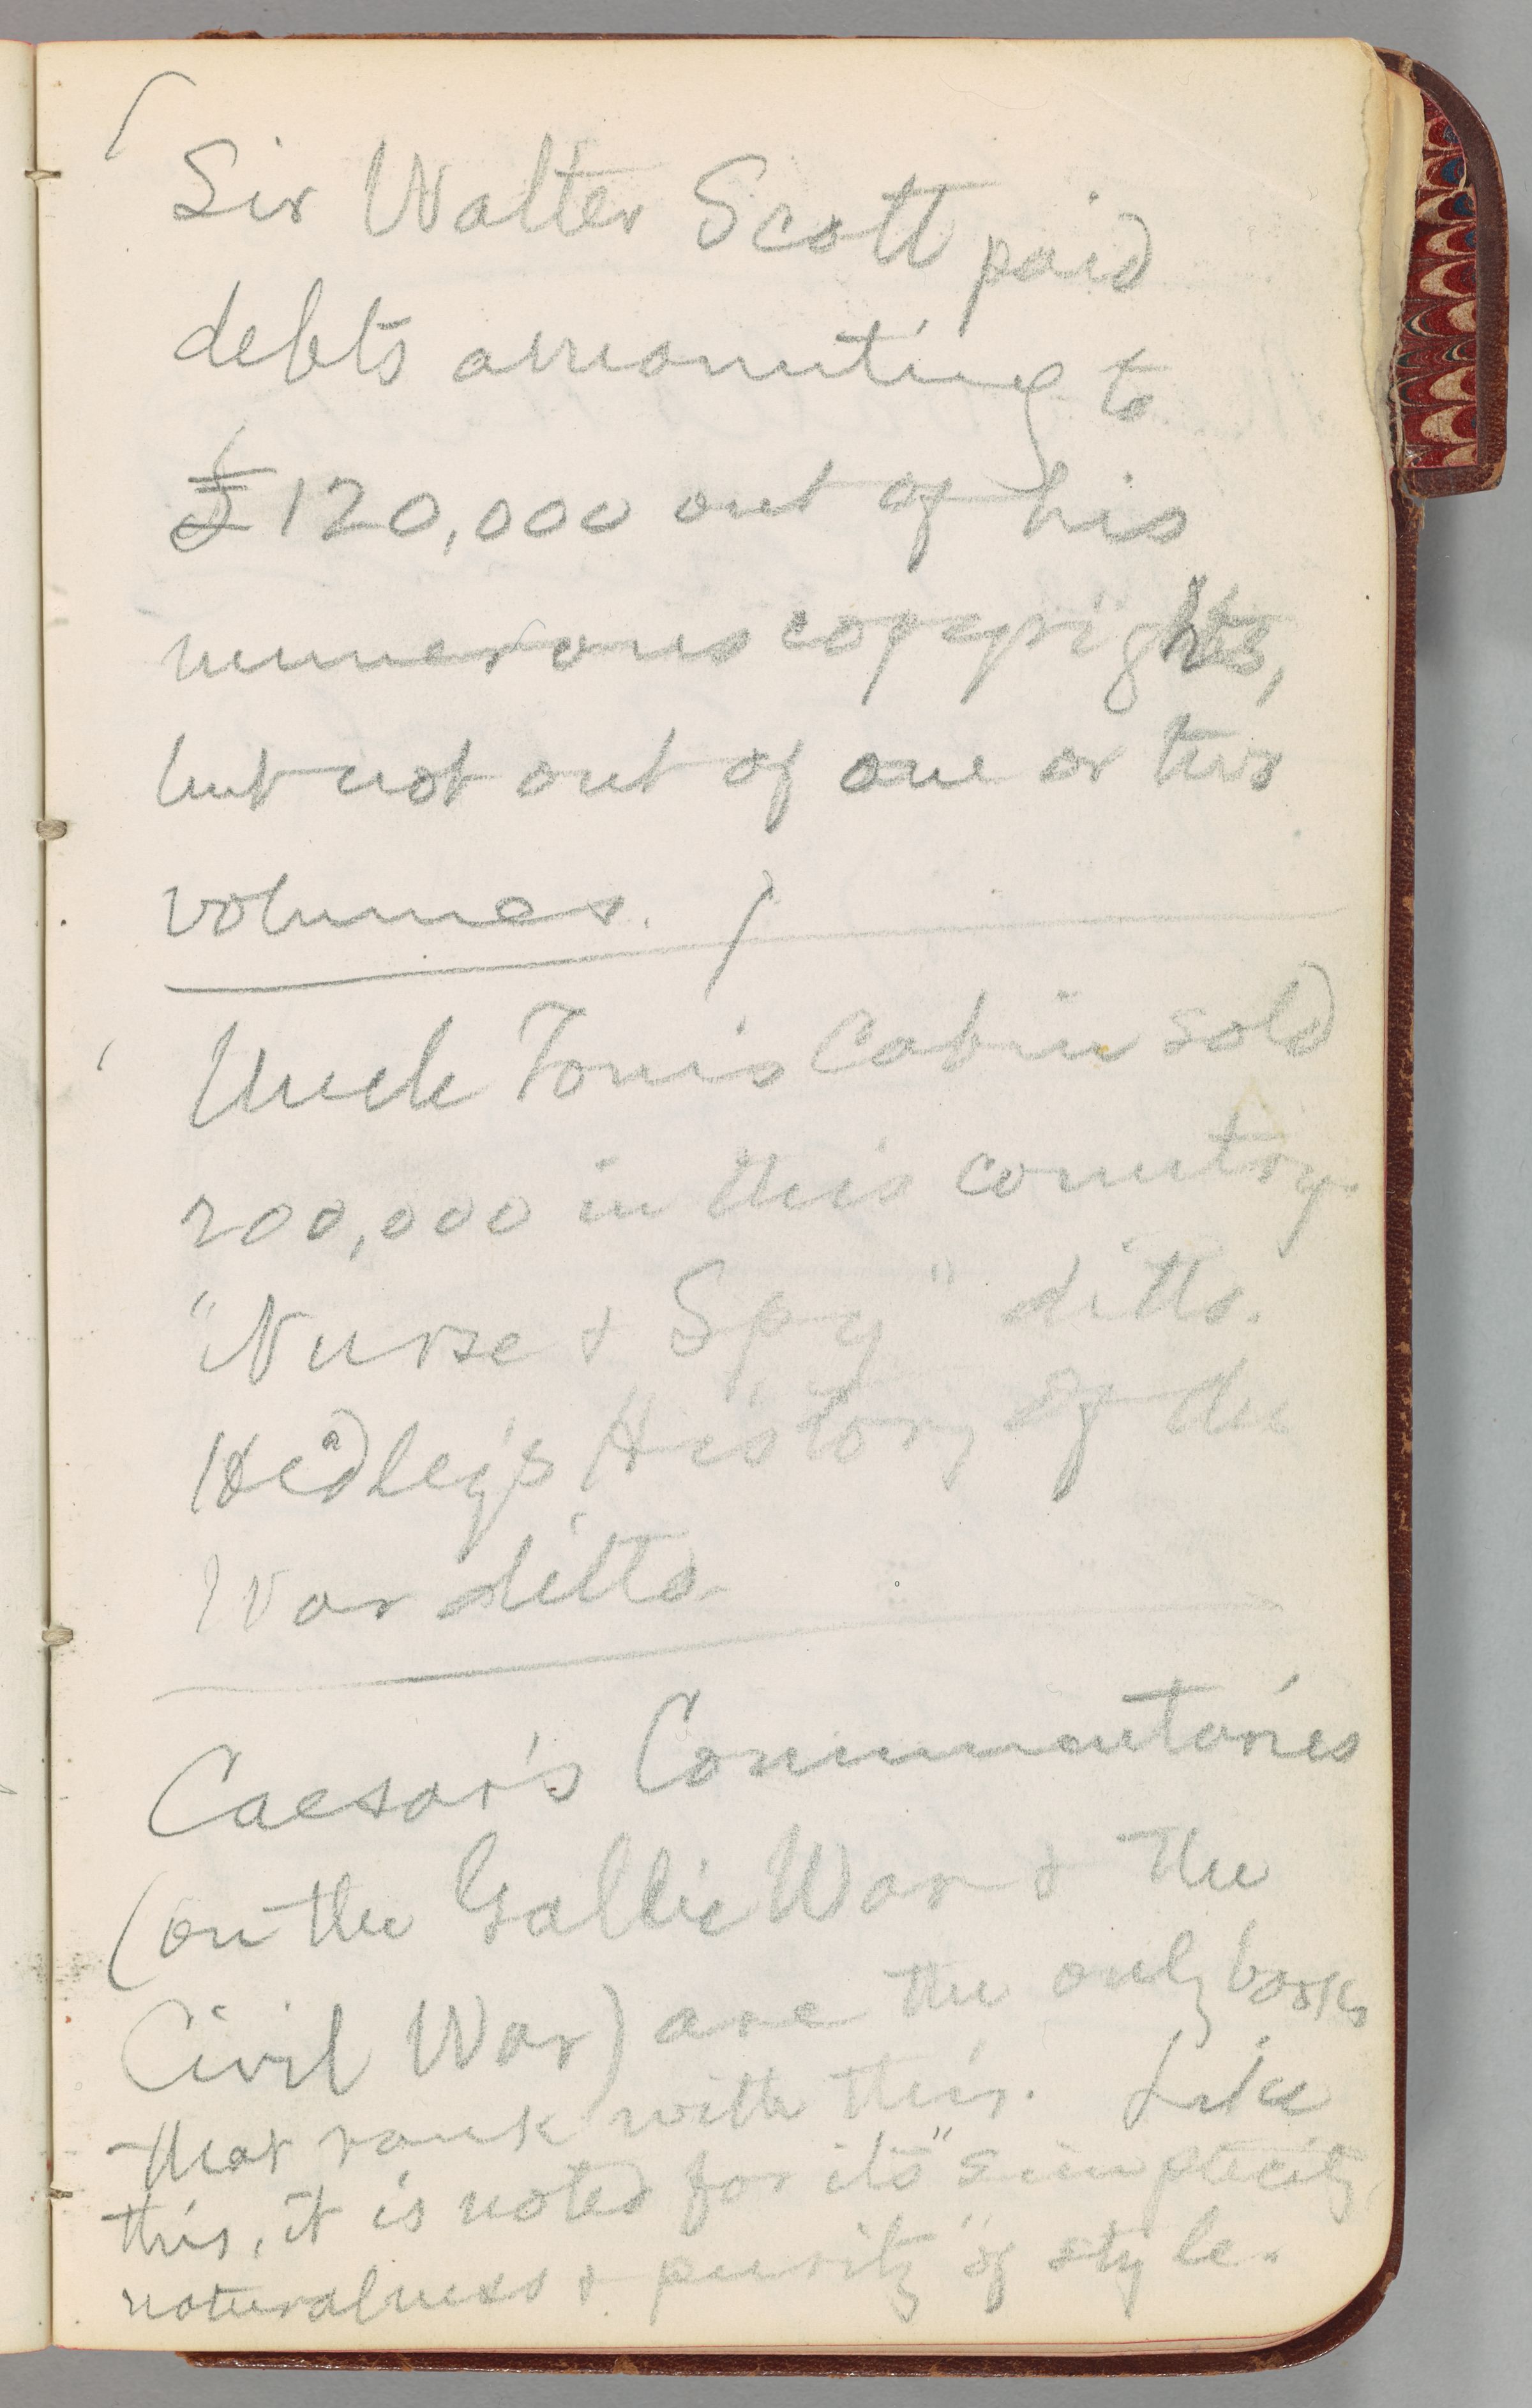 (Sir Walter Scott paid
debts amounting to
£120,000 out of his
numerous copyrights,
but not out of one or two
volumes.)
Uncle Tom's Cabin sold
200,000 in this country.
"Nurse & Spy" ditto.
Headley's History of the
War ditto.
Caesar's Commentaries
(on the Gallic War & the
Civil War) are the only books
that rank with this. Like
this, it is noted for its "simplicity,
naturalness & purity" of style.